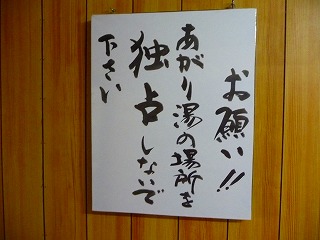 お願い!!
あがり湯の場所を
独占しないで
下さい